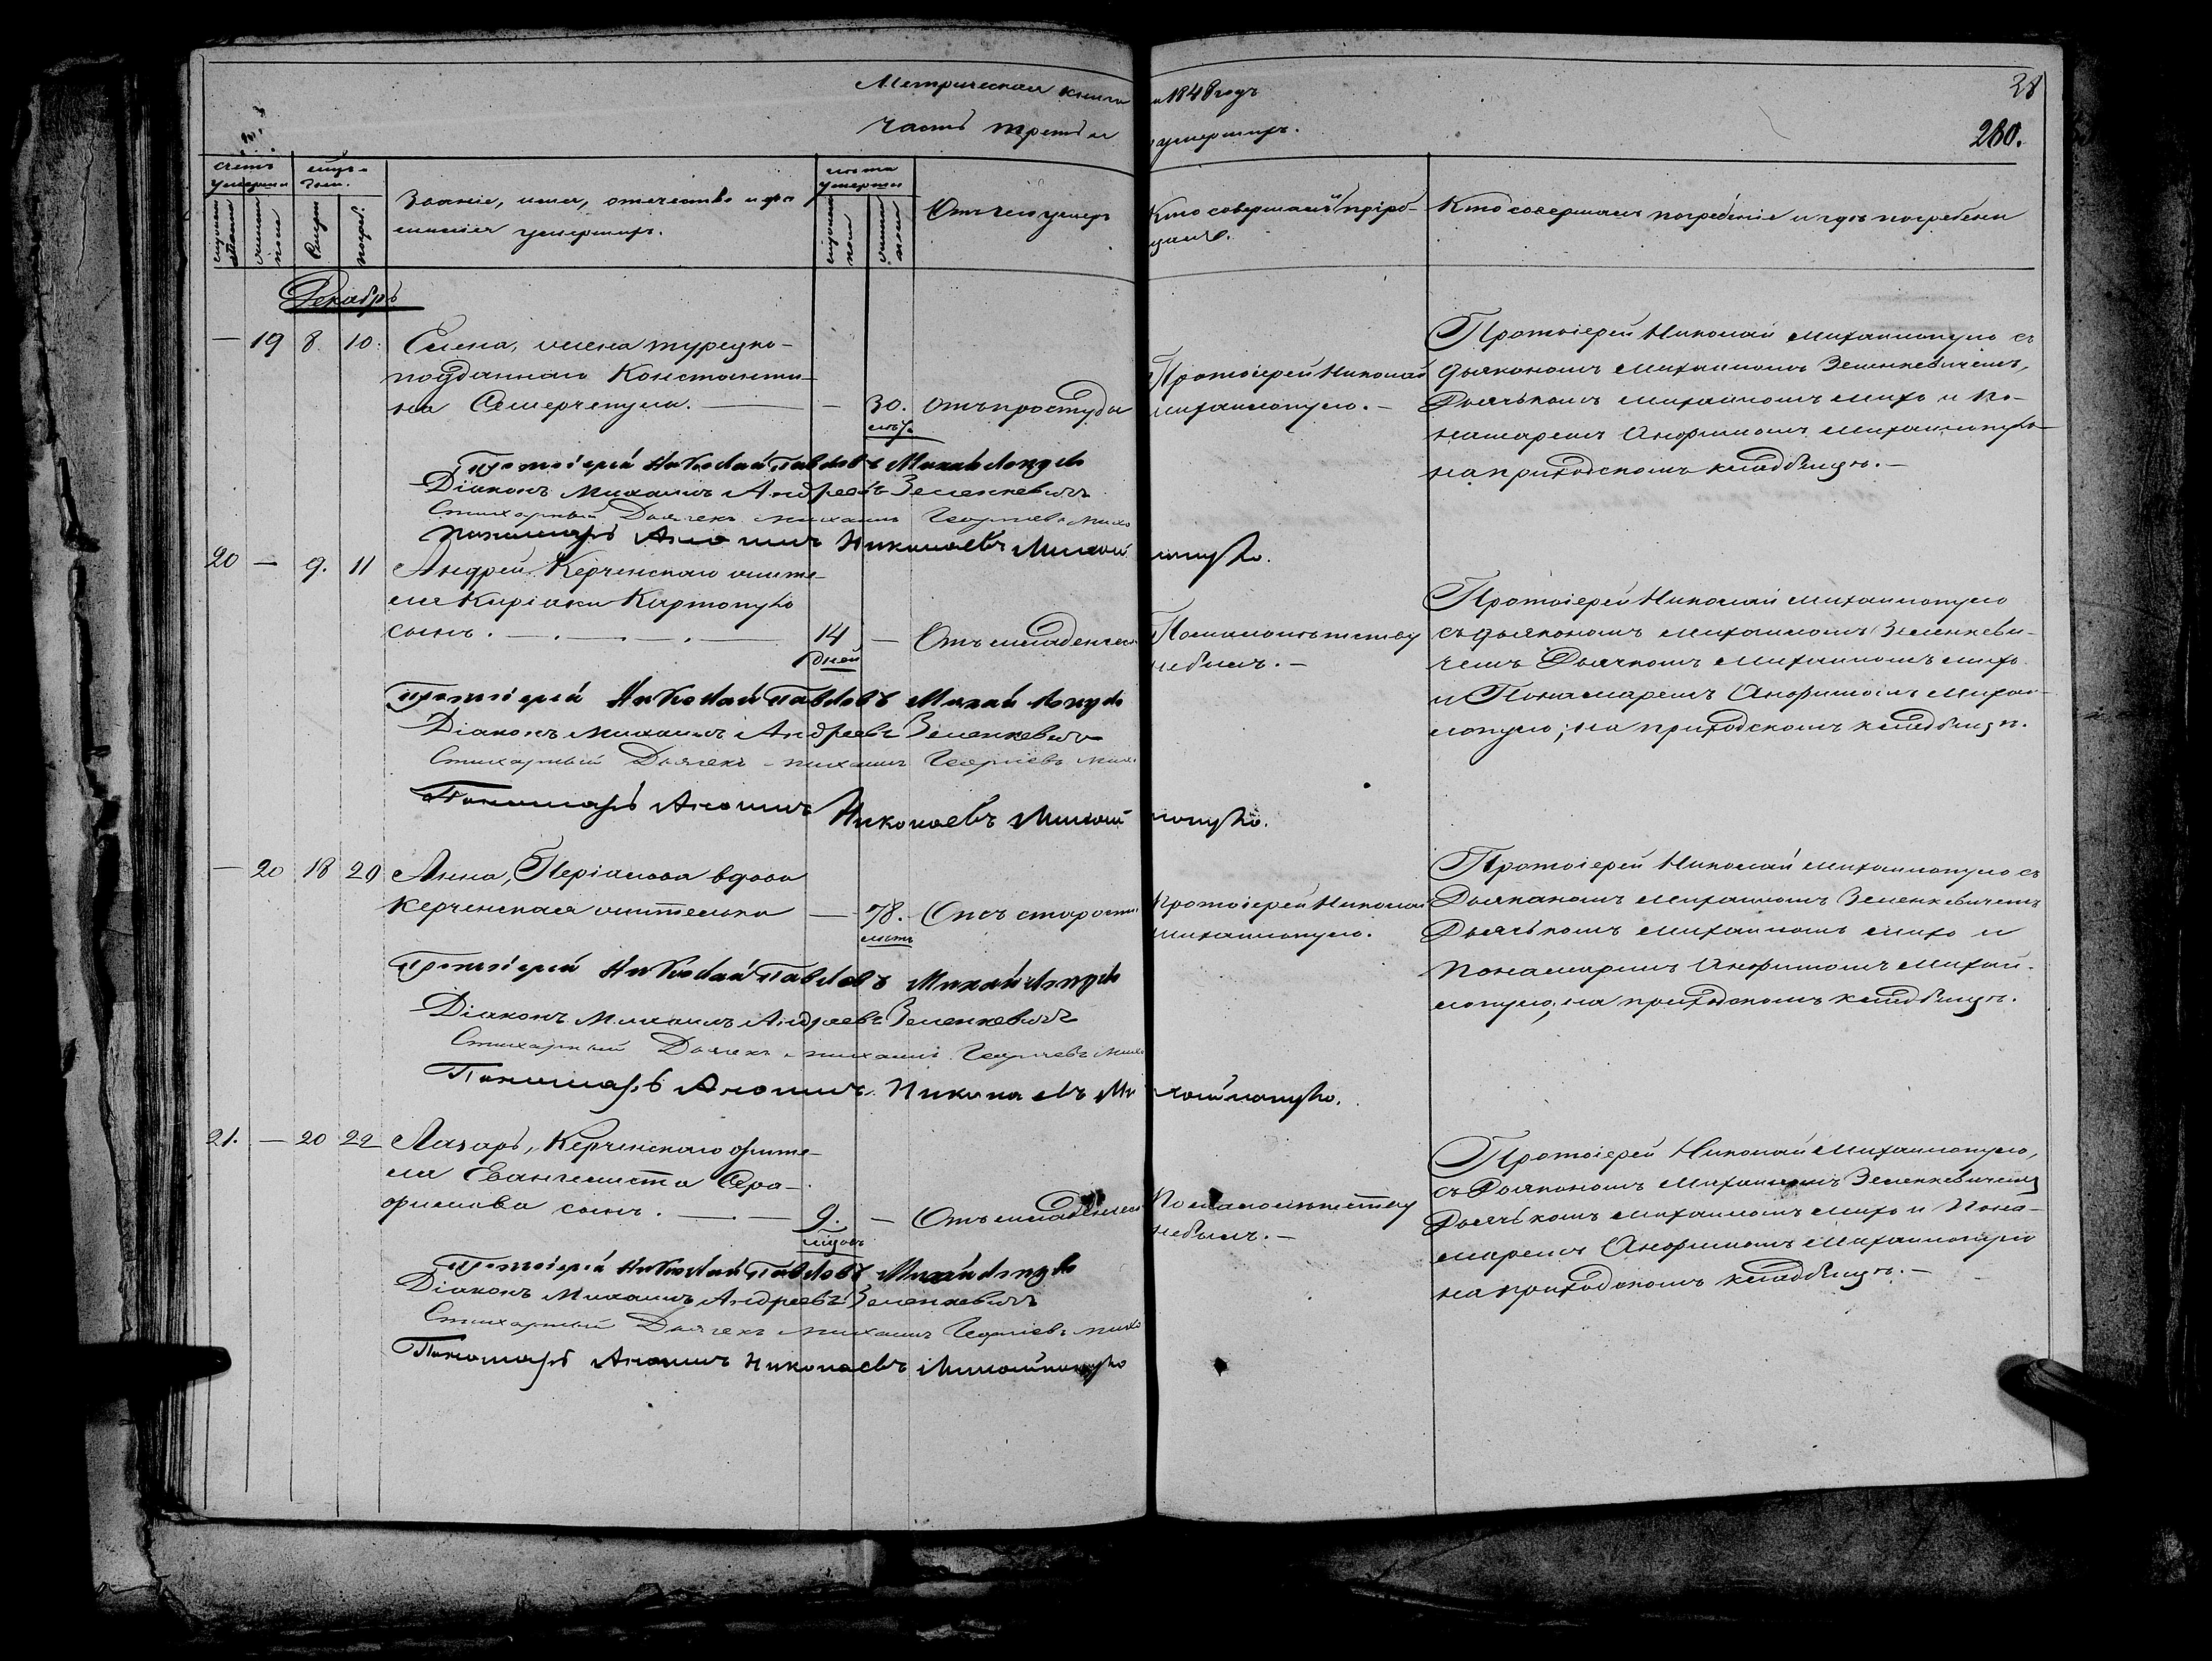 Метрическая книга на 1848 годъ
28
Часть третья о умершихъ.
260.
счетъ умершихъ
мѣс. день.
Званіе, имя, отечество и фа-
милія умершихъ.
лѣта умершаго
Отъ чего умеръ
Кто совершалъ
Кто совершалъ погребеніе и гдѣ погребены
мужеска пола
женска пола
смерти
погреб.
мужеска пола
женска пола
Декабрь
— 19 8. 10. Елена, жена турецко-
подданнаго Константи-
на — 30. Отъ простуды
лѣтъ
Протоіерей Николай
Михайлопуло. —
Протоіерей Николай Михайлопуло съ
Діакономъ Михаиломъ Зеленкевичемъ,
Дьячькомъ Михаиломъ Михо и По-
намаремъ Анфимомъ Михайлопуло
на приходскомъ кладбищѣ. —
Протоіерей Николай Павловъ Михайлопуло
Діаконъ Михаилъ Андреевъ Зеленкевичъ
Стихарный Дьячекъ Михаилъ Георгіевъ Михо
Пономарь Анфимъ Николаевъ Михайлопуло.
20 — 9. 11 Андрей, Керченскаго жите-
ля Киріаки Картопуло
сынъ. — 14 — Отъ младенческ.
дней
По малолѣтству
небылъ. —
Протоіерей Николай Михайлопуло
съ діакономъ Михаиломъ Зеленкеви-
чемъ Дьячкомъ Михаиломъ Михо
и Понамаремъ Анфимомъ Михай-
лопуло; на приходскомъ кладбищѣ.
Протоіерей Николай Павловъ Михайлопуло
Діаконъ Михаилъ Андреевъ Зеленкевичъ
Стихарный Дьячекъ Михаилъ Георгіевъ Михо
Пономарь Анфимъ Николаевъ Михайлопуло.
— 20 18 20 Анна, вдова
Керченская жителька — 78. Отъ старости
лѣтъ
Протоіерей Николай
Михайлопуло.
Протоіерей Николай Михайлопуло съ
Діакономъ Михаиломъ Зеленкевичемъ
Дьячькомъ Михаиломъ Михо и
Понамаремъ Анфимомъ Михай-
лопуло, на приходскомъ кладбищѣ.
Протоіерей Николай Павловъ Михайлопуло
Діаконъ Михаилъ Андреевъ Зеленкевичъ
Стихарный Дьячекъ Михаилъ Георгіевъ Михо
Пономарь Анфимъ Николаевъ Михайлопуло.
21. — 20 22 Лазарь, Керченскаго жите-
ля Евангелиста
сынъ. — 9. — Отъ младенческ.
мѣсяцовъ
По малолѣтству
небылъ. —
Протоіерей Николай Михайлопуло,
съ Діакономъ Михаиломъ Зеленкевичемъ
Дьячькомъ Михаиломъ Михо и Пона-
маремъ Анфимомъ Михайлопуло
на приходскомъ кладбищѣ. —
Протоіерей Николай Павловъ Михайлопуло
Діаконъ Михаилъ Андреевъ Зеленкевичъ
Стихарный Дьячекъ Михаилъ Георгіевъ Михо
Пономарь Анфимъ Николаевъ Михайлопуло